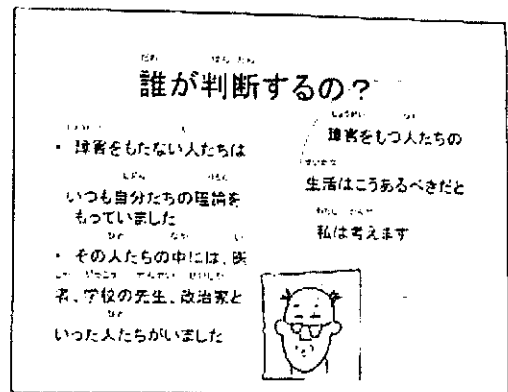 誰が判断するの?
・障害をもたない人たちは
いつも自分たちの理論を
もっていました
・その人たちの中には、医
者、学校の先生、政治家と
いった人たちがいました
障害をもつ人たちの
生活はこうあるべきだと
私は考えます